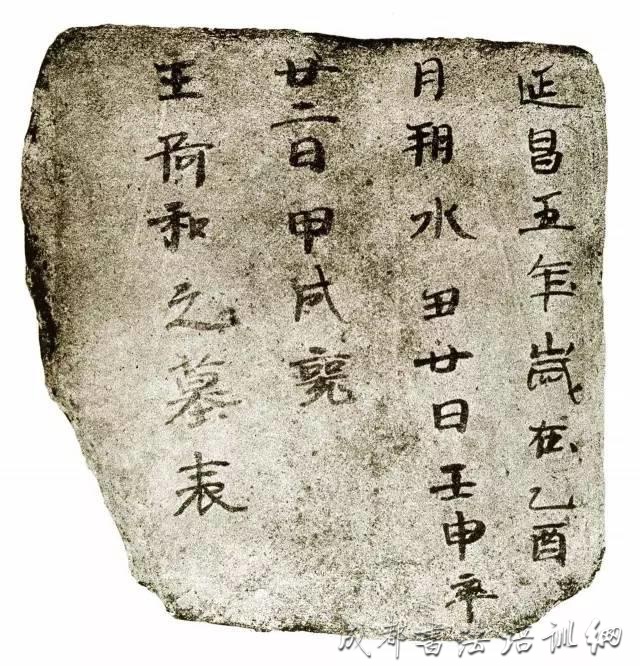 延昌五年歲在乙酉
月朔水丑廿日壬申卒
廿二日甲戌喪
王阿和之墓表
成都書法培訓網